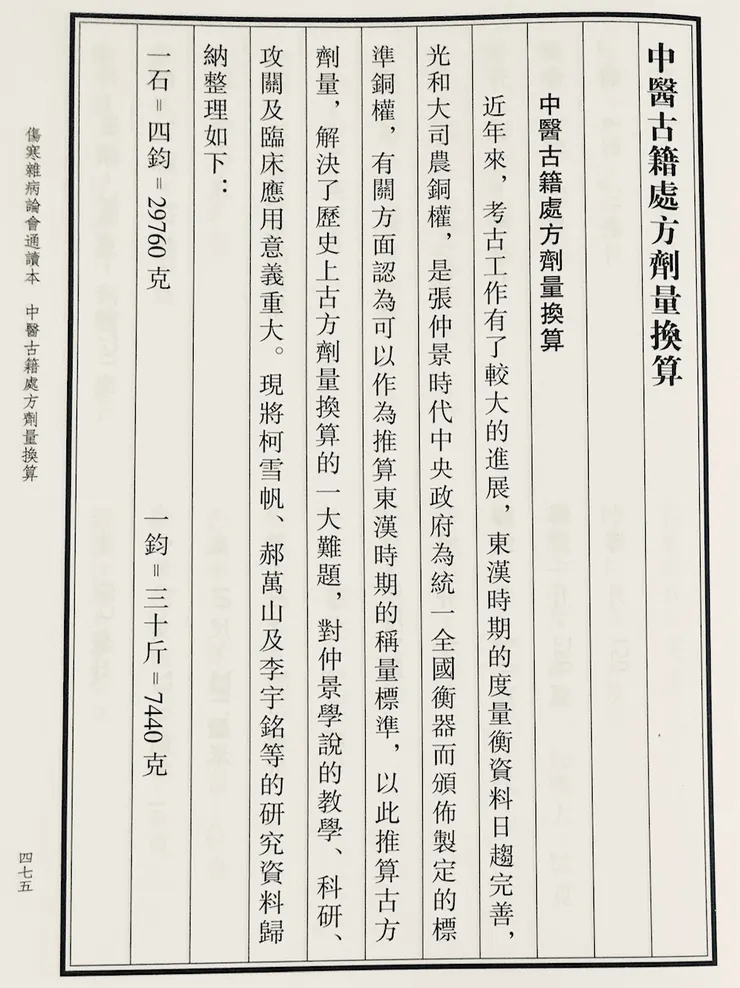 中醫古籍處方劑量換算
中醫古籍處方劑量換算
近年來，考古工作有了較大的進展，東漢時期的度量衡資料日趨完善，
光和大司農銅權，是張仲景時代中央政府為統一全國衡器而頒佈製定的標
準銅權，有關方面認為可以作為推算東漢時期的稱量標準，以此推算古方
劑量，解決了歷史上古方劑量換算的一大難題，對仲景學說的教學、科研、
攻關及臨床應用意義重大。現將柯雪帆、郝萬山及李宇銘等的研究資料歸
納整理如下：
一石=四鈞=29760克 一鈞=三十斤=7440克
傷寒雜病論會通讀本 中醫古籍處方劑量換算
四七五